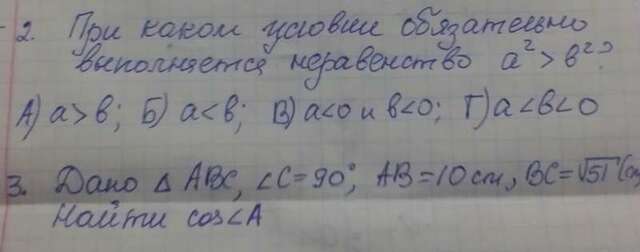 2. При каком условии обязательно
выполняется неравенство a² > в²?
А) a > в; Б) a < в; В) a < 0 и в < 0; Г) a < в < 0
3. Дано Δ ABC, ∠C = 90°, AB = 10 см, BC = √51 (см
Найти cos∠A